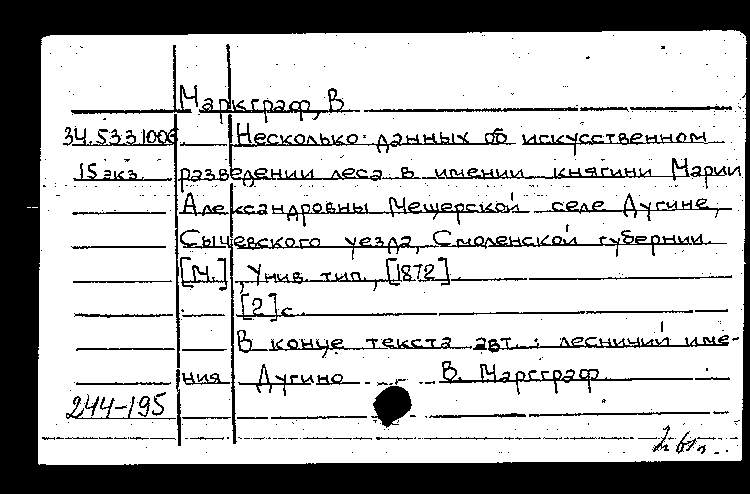 Маркграф, В
34.5331006 Несколько данных об искусственном
15 экз. разведении леса в имении княгини Марии
Александровны Мещерской селе Дугине,
Сычевского уезда, Смоленской губернии.
[М.], Унив. тип., [1872].
[2] с.
В конце текста авт.: лесничий име-
ния Дугино В. Маргграф.
244-195